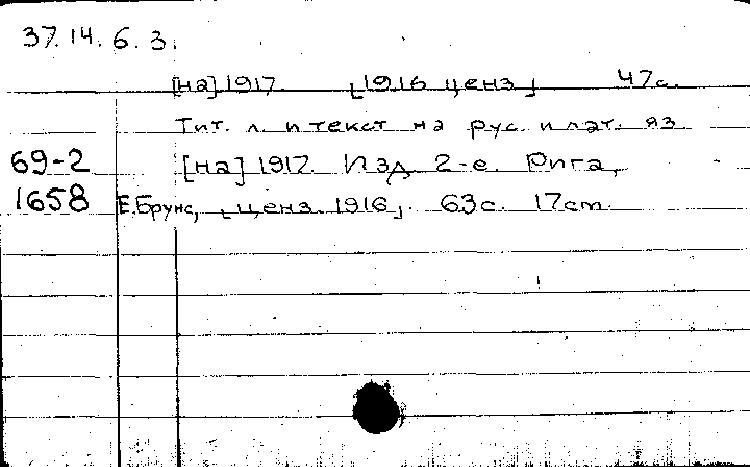 37.14.6.3.
[на] 1917. [1916 ценз] 47с.
Тит. л. и текст на рус. и лат. яз
69-2 [на] 1917. Изд 2-е. Рига,
1658 Е.Брунс, [ценз. 1916]. 63с. 17cm.